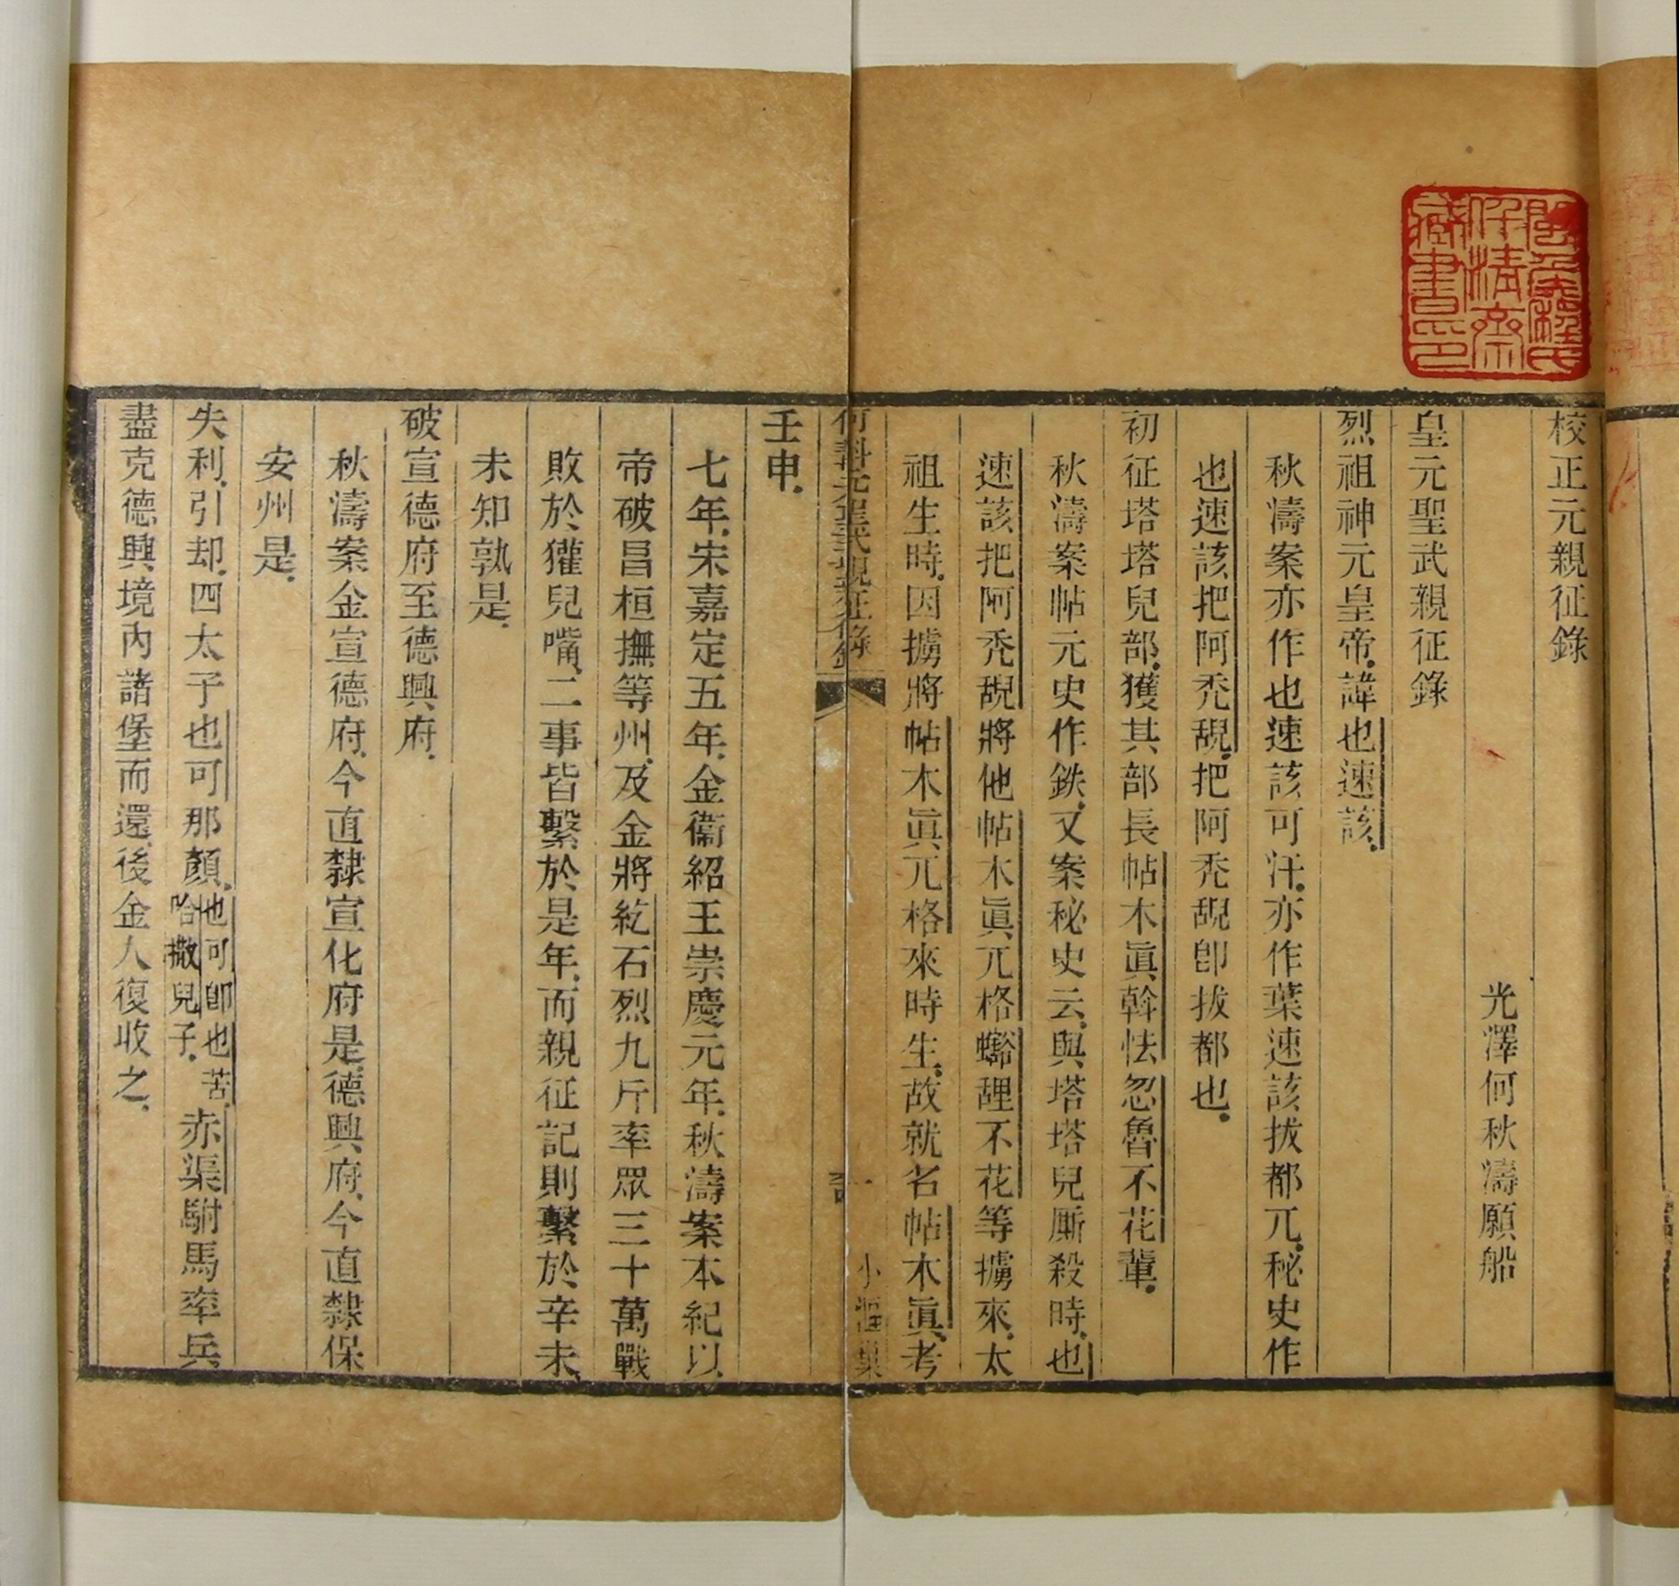 校正元親征錄
光澤何秋濤願船
皇元聖武親征錄
烈祖神元皇帝諱也速該
秋濤案亦作也速該可汗亦作葉速該拔都兀秘史作
也速該把阿禿𧠇把阿禿𧠇卽拔都也
初征塔塔兒部獲其部長帖木眞斡怯忽魯不花輩
秋濤案帖元史作鉄又案秘史云與塔塔兒廝殺時也
速該把阿禿𧠇將他帖木眞兀格豁里不花等擄來太
祖生時因擄將帖木眞兀格來時生故就名帖木眞考
小漚巢
壬申
七年宋嘉定五年金衞紹王崇慶元年秋濤案本紀以
帝破昌桓撫等州及金將紇石烈九斤率眾三十萬戰
敗於獾兒嘴二事皆繫於是年而親征記則繫於辛未
未知孰是
破宣德府至德興府
秋濤案金宣德府今直隸宣化府是德興府今直隸保
安州是
失利引却四太子也可那顏也可卽也苦哈撒兒子赤渠駙馬率兵
盡克德興境內諸堡而還後金人復收之